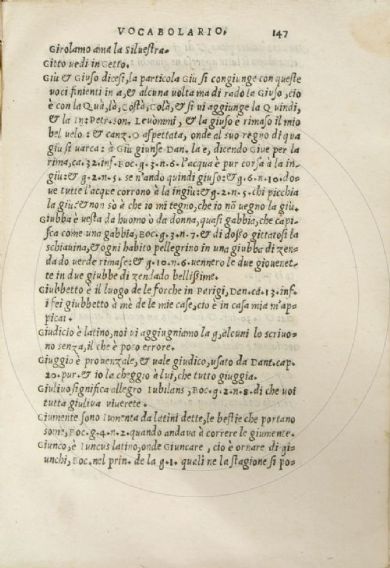 VOCABOLARIO. 147
Girolamo ama la Siluestra.
Gitto uedi in Getto.
Giù & Giuso dicesi, la particola Giu si congiunge con queste
voci finienti in a, & alcuna volta ma di rado la Giuso, cio
è con la Quà, là, Costà, Colà, & si vi aggiunge la Quindi,
& la In: Petr. son. Leuommi, & la giuso è rimaso il mio
bel velo: & canz. O aspettata, onde al suo regno di qua
giu si uarca: à Giù giunse Dan. la e, dicendo Giue per la
rima, ca. 32. inf. Boc. g. 3. n. 6. l'acqua è pur corsa à la in
giu: & g. 2. n. 5. se n'andò quindi giuso: & g. 6. n. 10. do=
ue tutte l'acque corrono à la ingiù: & g. 2. n. 5. chi picchia
la giu: & non sò è che io mi tegno, che io nõ uegno la giù.
Giubba è uesta da huomo ò da donna, quasi gabbia, che capi=
sca come una gabbia, Boc. g. 3. n. 7. & di dosso gittatosi la
schiauina, & ogni habito pellegrino in una giubba di zen=
dado verde rimase: & g. 10. n. 6. uennero le due giouenet=
te in due giubbe di zendado bellissime.
Giubbetto è il luogo de le forche in Parigi, Dan. ca. 13. inf.
i fei giubbetto à mè de le mie case, cio è in casa mia m'ap=
piccai.
Giudicio è latino, noi vi aggiugniamo la g, alcuni lo scriuo=
no senza, il che è poco errore.
Giuggio è prouenzale, & uale giudico, usato da Dant. cap.
20. pur. & io la cheggio à lui, che tutto giuggia.
Giuliuo significa allegro Iubilans, Boc. g. 2. n. 8. di che voi
tutta giuliua viuerete.
Giumente sono Iumenta da latini dette, le bestie che portano
some, Boc. g. 4. n. 2. quando andava à correre le giumente.
Giunco, è Iuncus latino, onde Giuncare, cio è ornare di giu
unchi, Boc. nel prin. de la g. 1. quali ne la stagione si po=